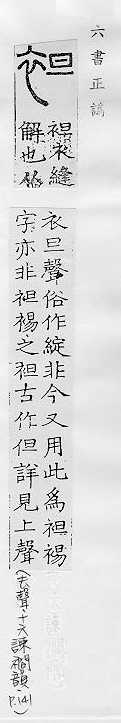 六書正譌
袒
袒衣縫
解也从
衣旦聲俗作綻非今又用此為袒裼
字亦非袒裼之袒古作但詳見上聲
(去聲·十六諫襉韻·P.141)